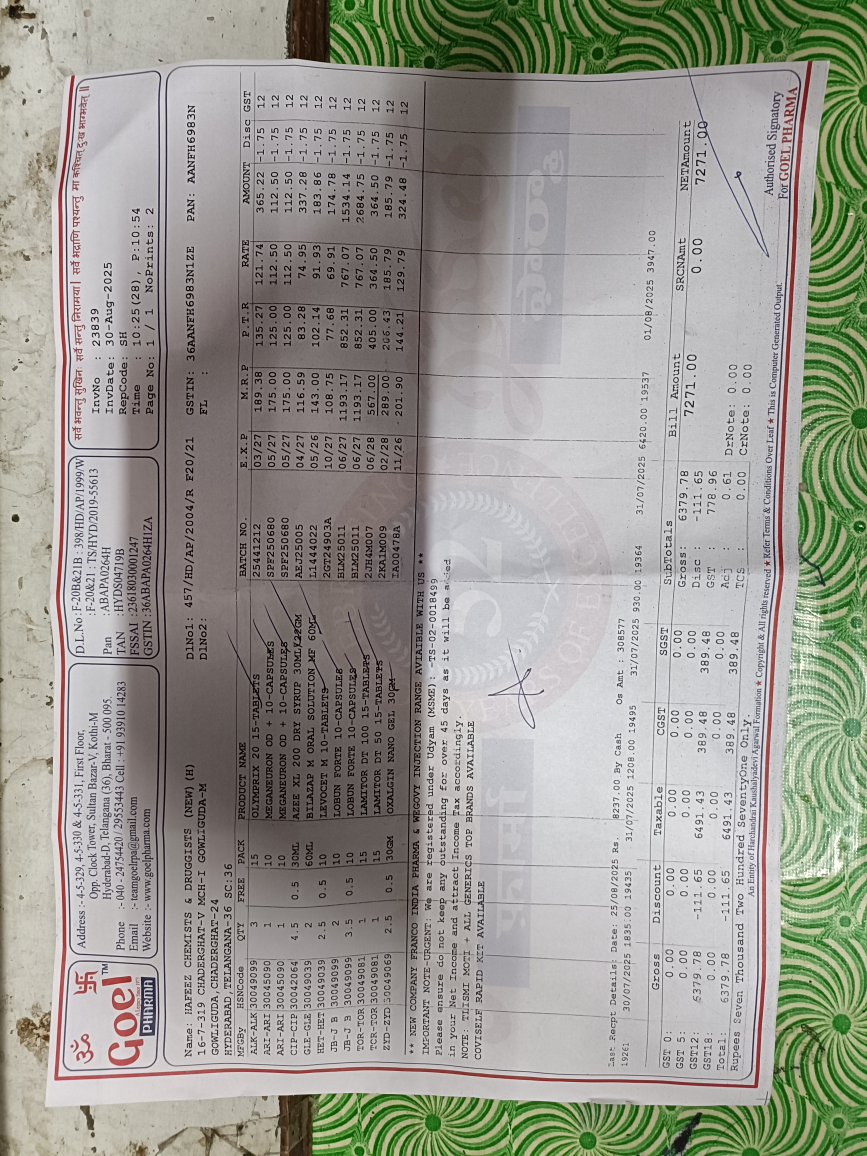 ॐ 卐
Goel™
PHARMA
Address :- 4-5-329, 4-5-330 & 4-5-331, First Floor,
Opp. Clock Tower, Sultan Bazar-V, Kothi-M
Hyderabad-D, Telangana (36), Bharat - 500 095.
Phone :- 040 - 24754420 / 29553443 Cell : +91 93910 14283
Email :- teamgoelrpa@gmail.com
Website :- www.goelpharma.com
D.L.No : F-20B&21B : 398/HD/AP/1999/W
: F-20&21 : TS/HYD/2019-55613
Pan : ABAPA0264H
TAN : HYDS04719B
FSSAI : 23618030001247
GSTIN : 36ABAPA0264H1ZA
सर्वे भवन्तु सुखिनः सर्वे सन्तु निरामया| सर्वे भद्राणि पश्यन्तु मा कश्चित् दुःख भाग्भवेत् ॥
InvNo : 23839
InvDate: 30-Aug-2025
RepCode: SH
Time : 10:25(28), P:10:54
Page No: 1 / 1 NoPrints: 2
Name: HAFEEZ CHEMISTS & DRUGGISTS (NEW) (H) DlNo1: 457/HD/AP/2004/R F20/21 GSTIN: 36AANFH6983N1ZE PAN: AANFH6983N
16-7-319 CHADERGHAT-V MCH-I GOWLIGUDA-M DlNo2: FL :
GOWLIGUDA/CHADERGHAT-24
HYDERABAD/TELANGANA-36 SC:36
MFGBy HSNCode QTY FREE PACK PRODUCT NAME BATCH NO. E.X.P M.R.P P.T.R RATE AMOUNT Disc GST
ALK-ALK 30049099 3 15 OLYMPRIX 20 15-TABLETS 25441212 03/27 189.38 135.27 121.74 365.22 -1.75 12
ARI-ARI 30045090 1 10 MEGANEURON OD + 10-CAPSULES SPF250680 05/27 175.00 125.00 112.50 112.50 -1.75 12
ARI-ARI 30045090 1 10 MEGANEURON OD + 10-CAPSULES SPF250680 05/27 175.00 125.00 112.50 112.50 -1.75 12
CIP-CIP 30042064 4.5 0.5 30ML AZEE XL 200 DRY SYRUP 30ML AEJ25005 04/27 116.59 83.28 74.95 337.28 -1.75 12
GLE-GLE 30049039 2 60ML BILAZAP M ORAL SOLUTION MF 60ML L1444022 05/26 143.00 102.14 91.93 183.86 -1.75 12
HET-HET 30049039 2.5 0.5 10 LEVOCET M 10-TABLETS 2GT24903A 10/27 108.75 77.68 69.91 174.78 -1.75 12
JB-J B 30049099 2 10 LOBUN FORTE 10-CAPSULES BLM25011 06/27 1193.17 852.31 767.07 1534.14 -1.75 12
JB-J B 30049099 3.5 0.5 10 LOBUN FORTE 10-CAPSULES BLM25011 06/27 1193.17 852.31 767.07 2684.75 -1.75 12
TOR-TOR 30049081 1 15 LAMITOR DT 100 15-TABLETS 2JH4M007 06/28 567.00 405.00 364.50 364.50 -1.75 12
TCR-TOR 30049081 1 15 LAMITOR DT 50 15-TABLETS 2KA1M009 02/28 289.00 206.43 185.79 185.79 -1.75 12
ZYD-ZYD 30049069 2.5 0.5 30GM OXALGIN NANO GEL 30GM IA00478A 11/26 201.90 144.21 129.79 324.48 -1.75 12
** NEW COMPANY FRANCO INDIA PHARMA & WEGOVY INJECTION RANGE AVIAIBLE WITH US **
IMPORTANT NOTE-URGENT: We are registered under Udyam (MSME): -TS-02-0018499
Please ensure do not keep any outstanding for over 45 days as it will be added
in your Net Income and attract Income Tax accordingly.
NOTE: TLISMI MOTI + ALL GENERICS TOP BRANDS AVAILABLE
COVISELF RAPID KIT AVAILABLE
Last Recpt Details: Date: 25/08/2025 Rs. 8237.00 By Cash Os Amt : 308577
19261 30/07/2025 1835.00 19435 31/07/2025 1208.00 19495 31/07/2025 930.00 19364 31/07/2025 6420.00 19537 01/08/2025 3947.00
Gross Discount Taxable CGST SGST SubTotals Bill Amount SRCNAmt NETAmount
GST 0: 0.00 0.00 0.00 0.00 0.00 Gross: 6379.78 7271.00 0.00 7271.00
GST 5: 0.00 0.00 0.00 0.00 0.00 Disc : -111.65
GST12: 6379.78 -111.65 6491.43 389.48 389.48 GST : 778.96
GST18: 0.00 0.00 0.00 0.00 0.00 Adj : 0.61 DrNote: 0.00
Total: 6379.78 -111.65 6491.43 389.48 389.48 TCS : 0.00 CrNote: 0.00
Rupees Seven Thousand Two Hundred SeventyOne Only.
An Entity of Harchandrai Kaushalyadevi Agarwal Formation ★ Copyright & All rights reserved ★ Refer Terms & Conditions Over Leaf ★ This is Computer Generated Output.
Authorised Signatory
For GOEL PHARMA